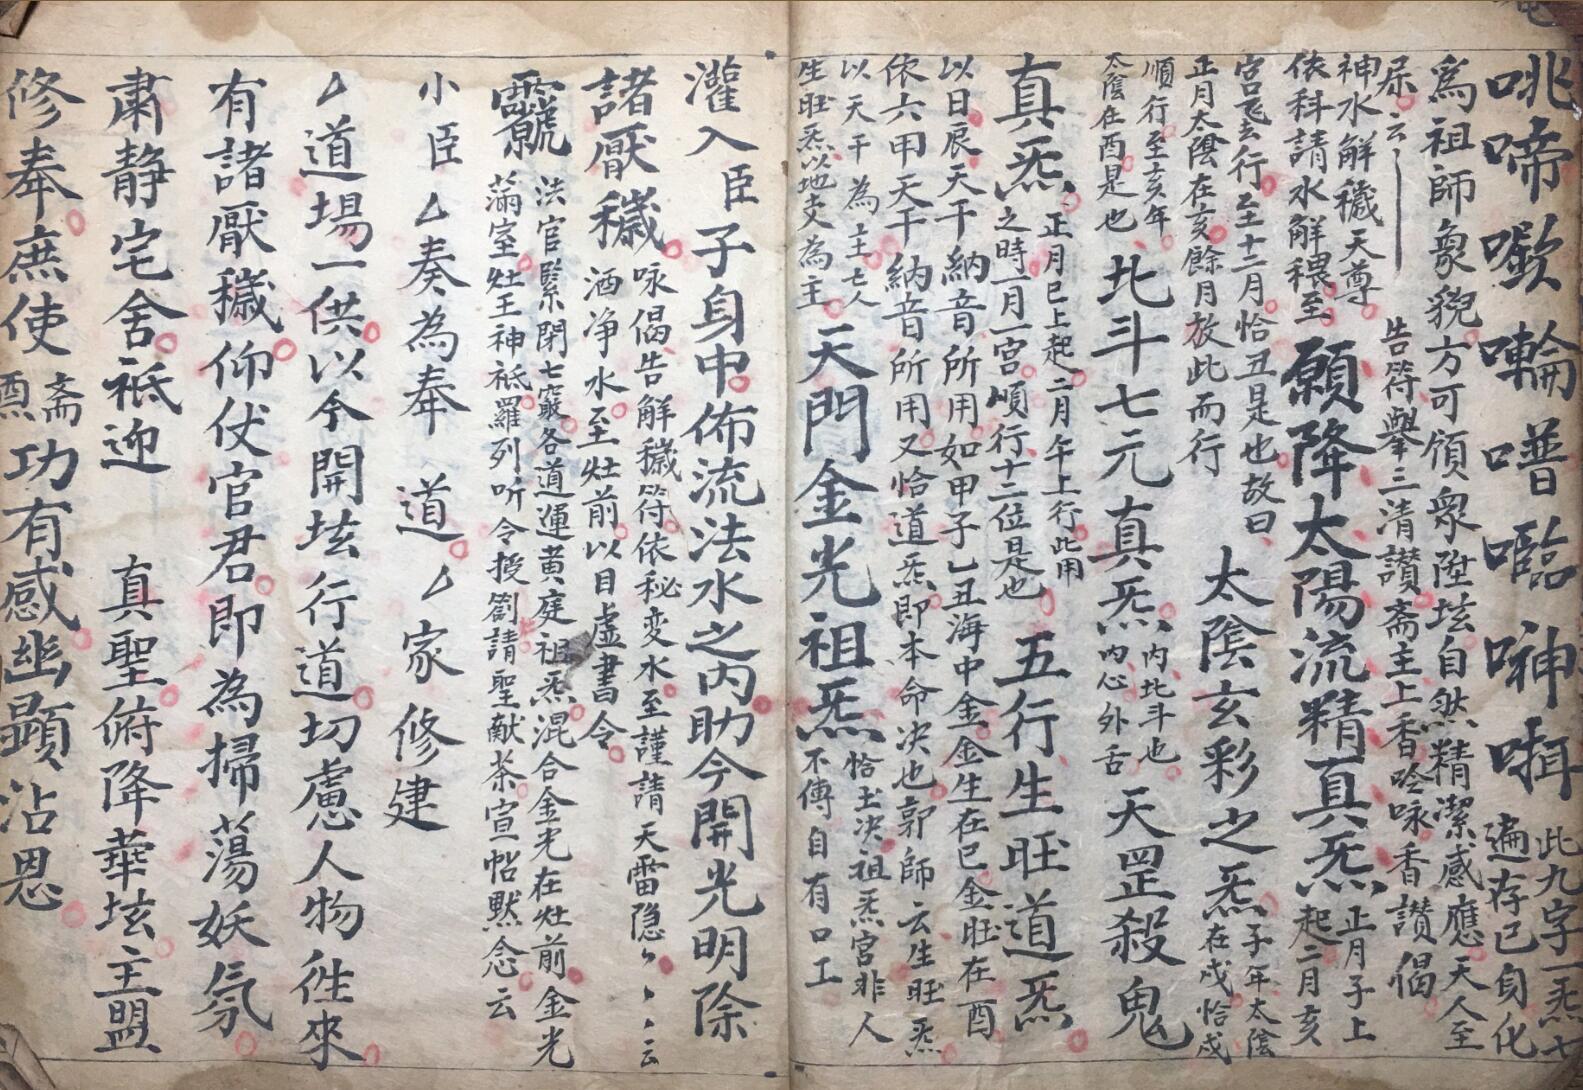 咷啼噷㖮噃𡅏㖿𠵆此九字一炁七
遍存已身化
為祖師象貌方可領衆陞坛自然精潔感應天人至
尿云
告符舉三清讃斋主上香唫咏香讃偈
神水解穢天尊
依科請水解穢至
願降太陽流精真炁正月子上
起二月亥
宫飞去行至十二月恰丑是也故曰
太陰玄彩之炁子年太陰
在戌恰戍
正月太陰在亥餘月放此而行
順行至亥年
太陰在酉是也
北斗七元真炁内北斗也
内心外舌
天罡殺鬼
真炁正月巳上起二月午上行此用
之時一月一宫順行十二位是也
五行生旺道炁
以日辰天干納音所用如甲子乙丑海中金金生在巳金旺在酉
依六甲天干納音所用又恰道炁即本命决也郭師云生旺炁
以天干為主七人
生旺炁以地支為主
天門金光祖炁恰土决祖炁宫非人
不傳自有口工
灌入臣子身中佈流法水之内助今開光明除
諸厭穢咏偈告解穢符依秘变水至謹請天雷隐〻〻云
洒净水至灶前以目虚書令
法官緊閉七竅各道運黄庭祖炁混合金光在灶前金光
滿室灶王神祗羅列听令授劄請聖献茶宣帖默念云
小臣厶奏為奉道厶家修建
厶道場一供以今開坛行道切慮人物往來
有諸厭穢仰仗官君即為掃蕩妖氛
肃静宅舍祗迎真聖俯降華坛主盟
修奉庶使斋
功有感幽顯沾恩